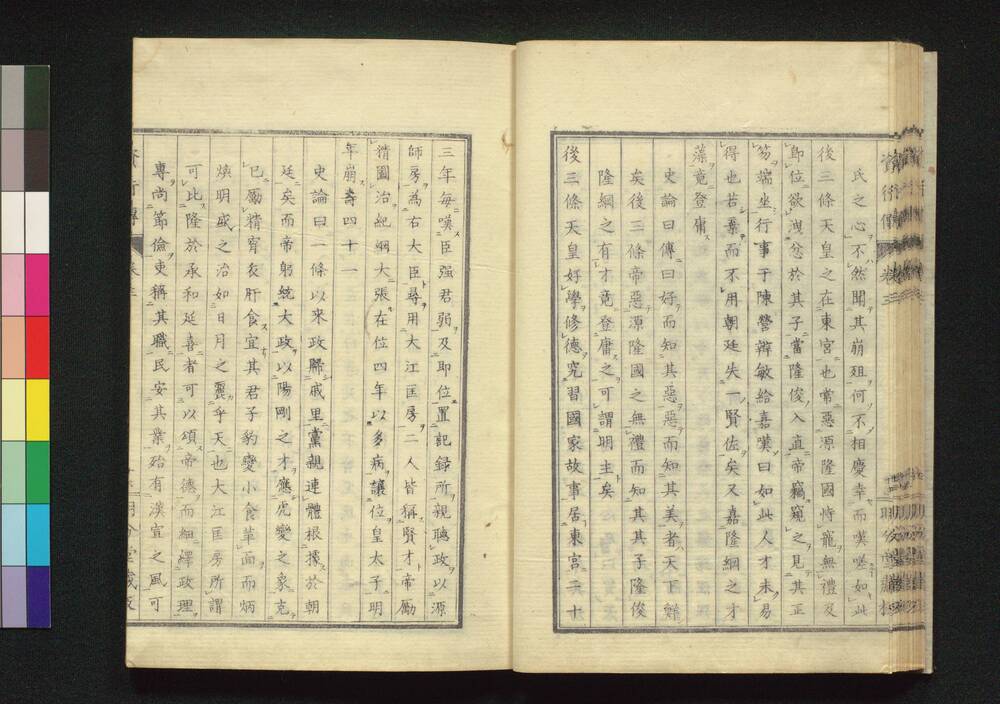 氏之心不然聞其崩殂何不相慶幸而嘆嗟如此
後三條天皇之在東宮也常惡源隆國恃寵無禮及
即位欲洩忿於其子當隆俊入直帝竊窺之見其正
笏端坐行事于陳營辨敏給嘉嘆曰如此人才未易
得也若棄而不用朝廷失一賢佐矣又嘉隆綱之才
藻竟登庸
史論曰傳曰好而知其惡惡而知其美者天下鮮
矣後三條帝惡源隆國之無禮而知其其子隆俊
隆綱之有才竟登庸之可謂明主矣
後三條天皇好學修德究習國家故事居東宮二十
三年每嘆臣强君弱及即位置記録所親聽政以源
師房為右大臣尋用大江匡房二人皆稱賢才帝勵
精圖治紀綱大張在位四年以多病讓位皇太子明
年崩壽四十一
史論曰一條以來政歸戚里黨親連體根據於朝
廷矣而帝躬統大政以陽剛之才應虎變之象克
已屬精宵衣旰食宜其君子豹變小人革面而炳
煥明盛之治如日月之麗乎天也大江匡房所謂
可比隆於承和延喜者可以頌帝德而細繹政理
專尚節儉吏稱其職民安其業殆有漢宣之風可